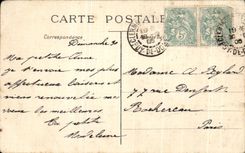 CARTE POSTALE
Correspondance
Dimanche 30
Ma petite Anna
Je t'envoie mes plus
affectueux baisers et
nous renouvelle nos
vœux les meilleurs
Ta petite
Madeleine
Madame A.
77 rue Denfert
Rochereau
Paris